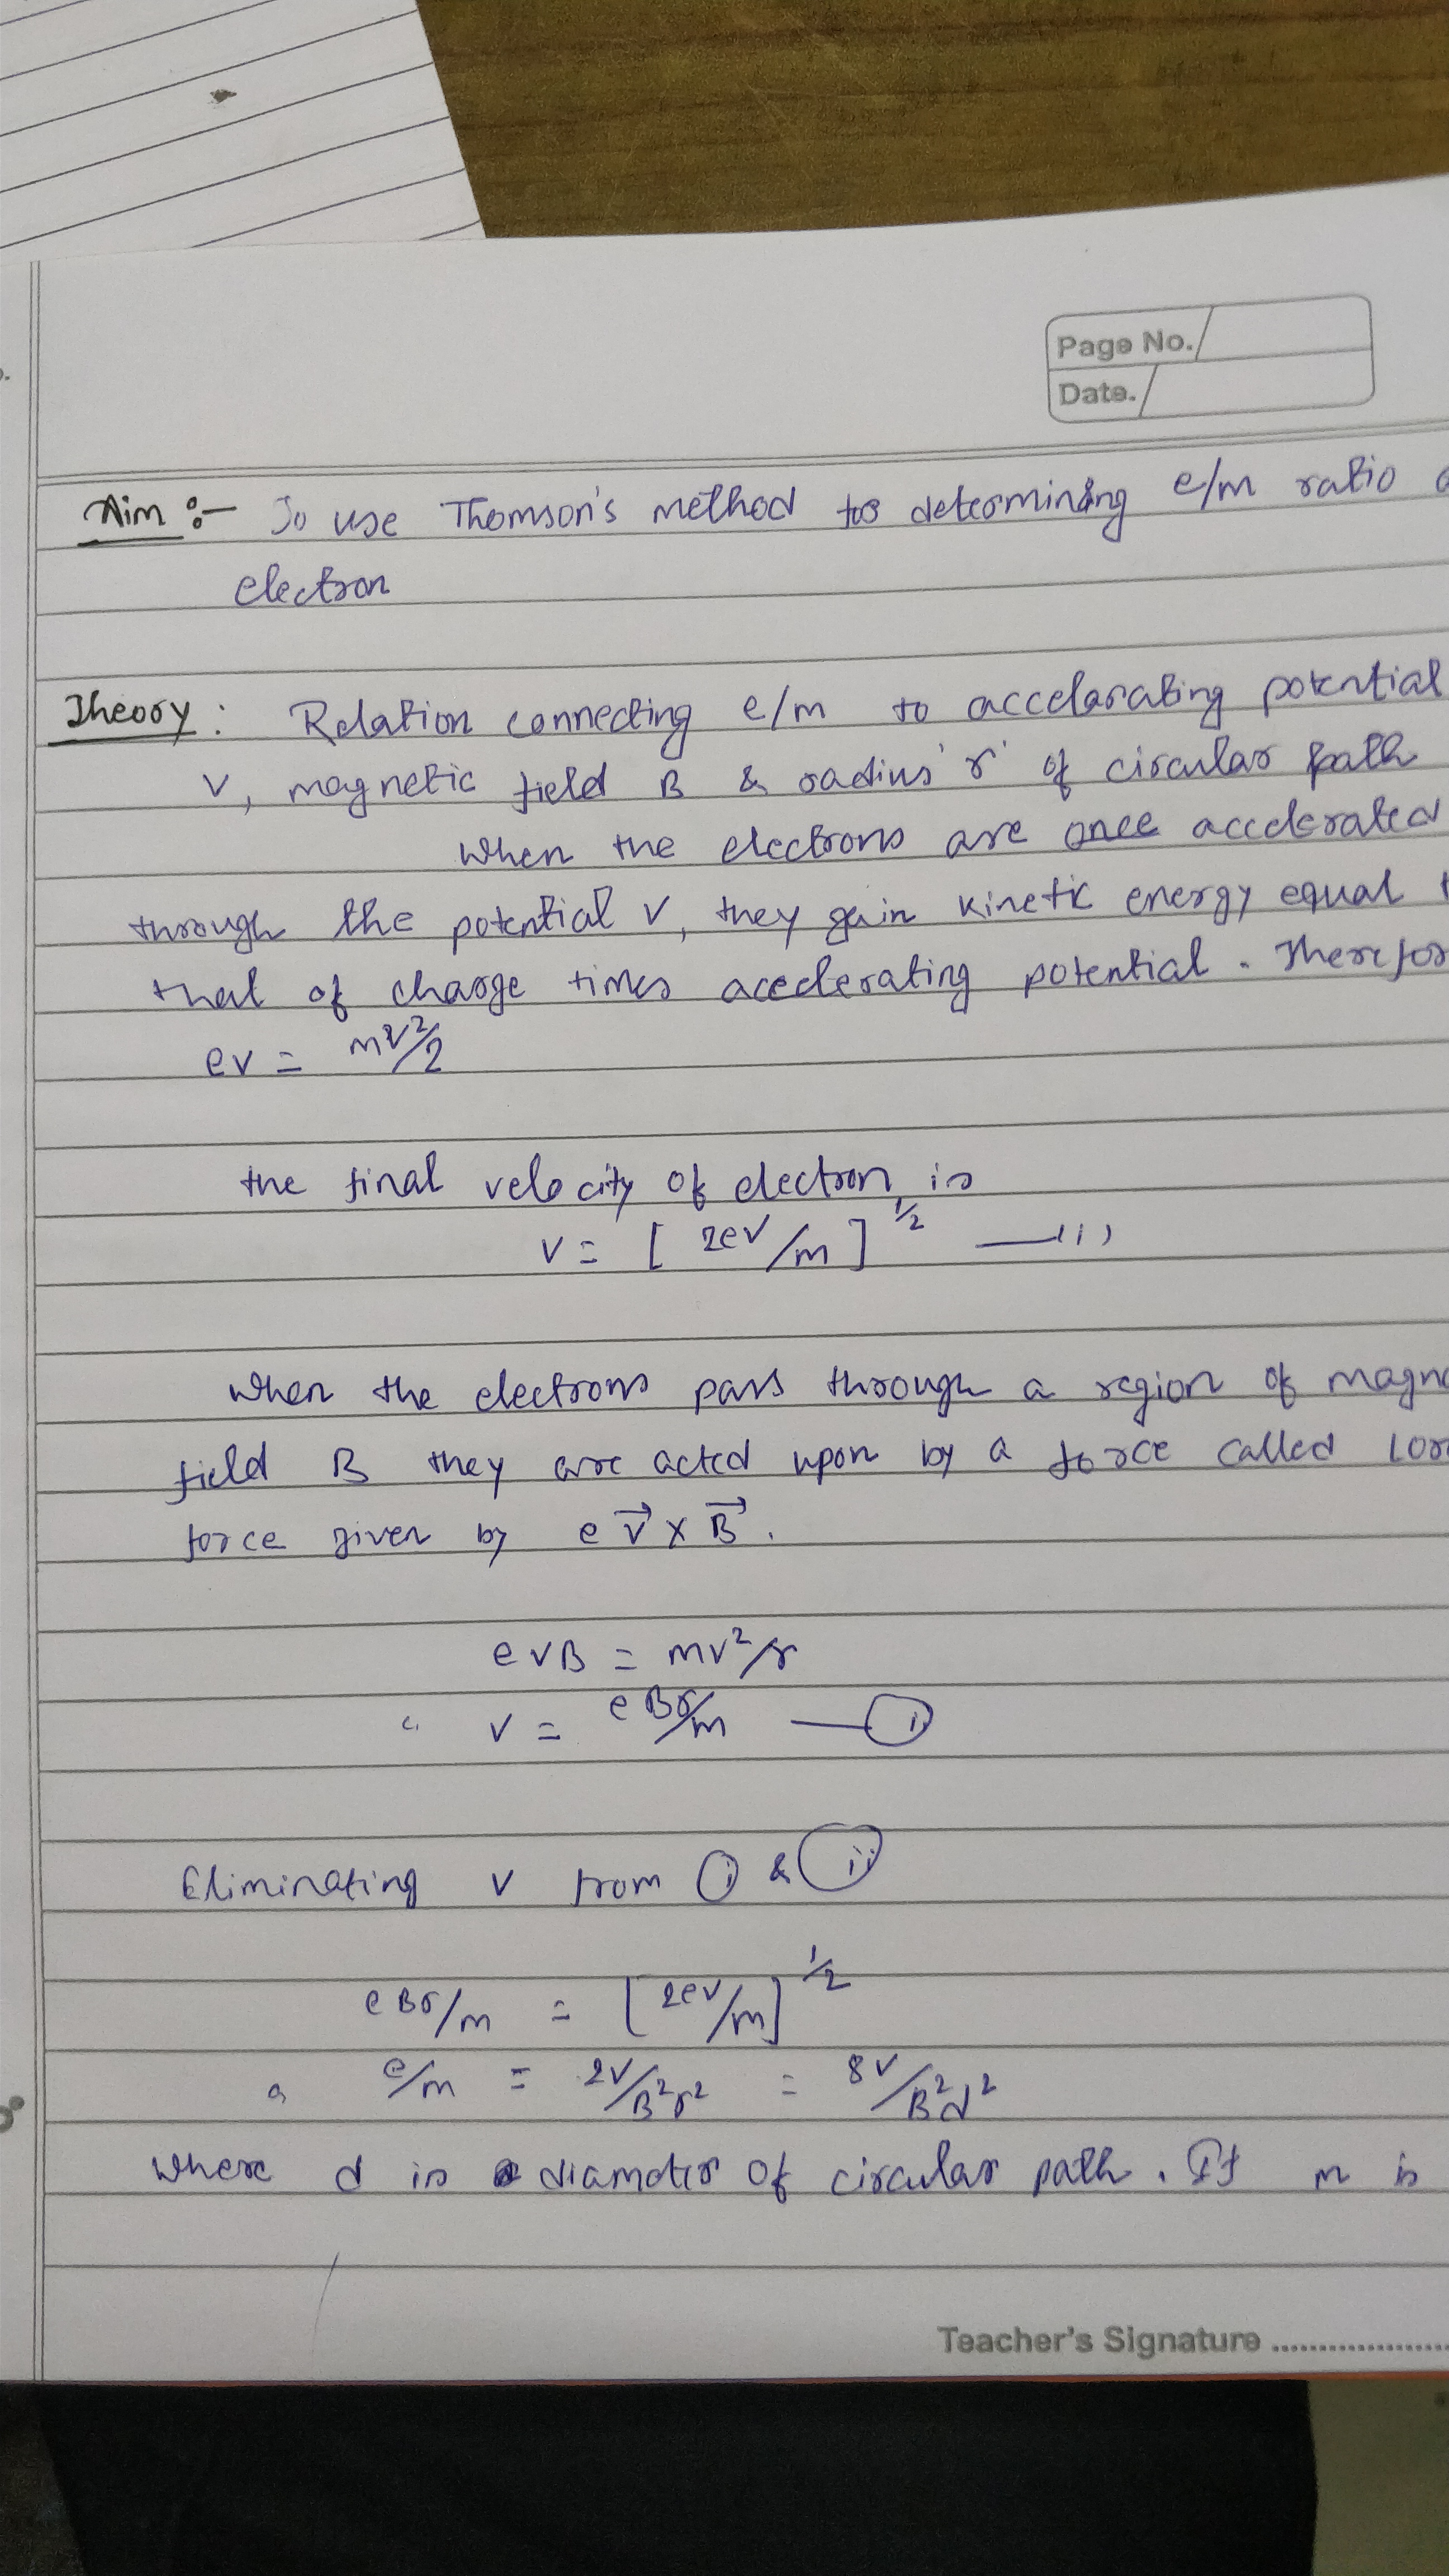 Page No.
Date.
Aim :- To use Thomson's method for determining e/m ratio
electron
Theory : Relation connecting e/m to accelarating potential
V, magnetic field B & radius 'r' of circular path
When the electrons are once accelerated
through the potential V, they gain kinetic energy equal t
that of charge times accelerating potential. Therefor
eV = mv²/2
the final velocity of electron is
V = [2eV/m]^1/2 —(i)
When the electrons pass through a region of magne
field B they are acted upon by a force called Lor
force given by e v⃗ × B⃗.
evB = mv²/r
v = eBr/m — (i)
Eliminating v from (i) & (ii)
eBr/m = [2eV/m]^1/2
e/m = 2V/B²r² = 8V/B²d²
where d is diameter of circular path. If m is
Teacher's Signature ....................